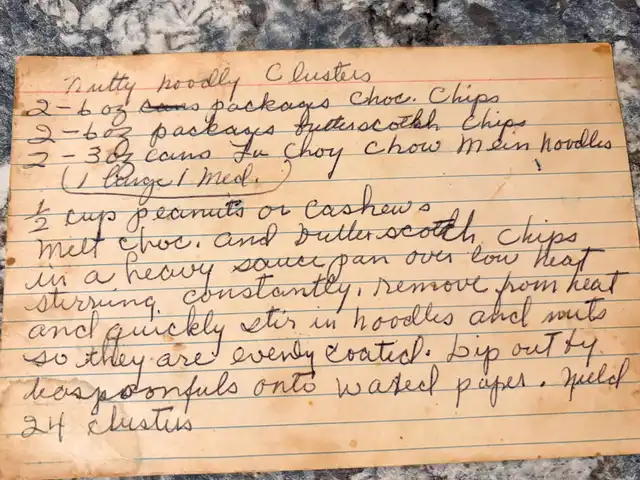 Nutty Noodly Clusters
2-6 oz cans packages choc. Chips
2-6oz packages butterscotch chips
2-3oz cans La Choy Chow Mein Noodles
(1 large 1 Med.)
½ cup peanuts or cashews
Melt choc. and butterscotch chips
in a heavy sauce pan over low heat
stirring constantly, remove from heat
and quickly stir in noodles and nuts
so they are evenly coated. Dip out by
teaspoonfuls onto waxed paper. yield
24 clusters